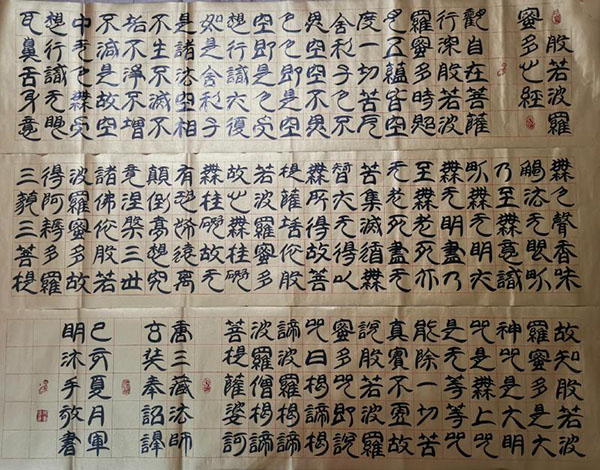 般若波羅
蜜多心經
觀自在菩薩
行深般若波
羅蜜多時照
見五蘊皆空
度一切苦厄
舍利子色不
異空空不異
色色即是空
空即是色受
想行識亦復
如是舍利子
是諸法空相
不生不滅不
垢不淨不增
不減是故空
中无色無受
想行識无眼
耳鼻舌身意
無色聲香味
觸法无眼界
乃至無意識
界无無明亦
無无明盡乃
至無老死亦
无老死盡无
苦集滅道無
智亦无得以
無所得故菩
提薩埵依般
若波羅蜜多
故心無罣礙
無罣礙故无
有恐怖遠離
顛倒夢想究
竟涅槃三世
諸佛依般若
波羅蜜多故
得阿耨多羅
三藐三菩提
故知般若波
羅蜜多是大
神咒是大明
咒是無上咒
是无等等咒
能除一切苦
真實不虛故
說般若波羅
蜜多咒即說
咒曰揭諦揭
諦波羅揭諦
波羅僧揭諦
菩提薩婆訶
唐三藏法師
玄奘奉詔譯
己亥夏月軍
明沐手敬書